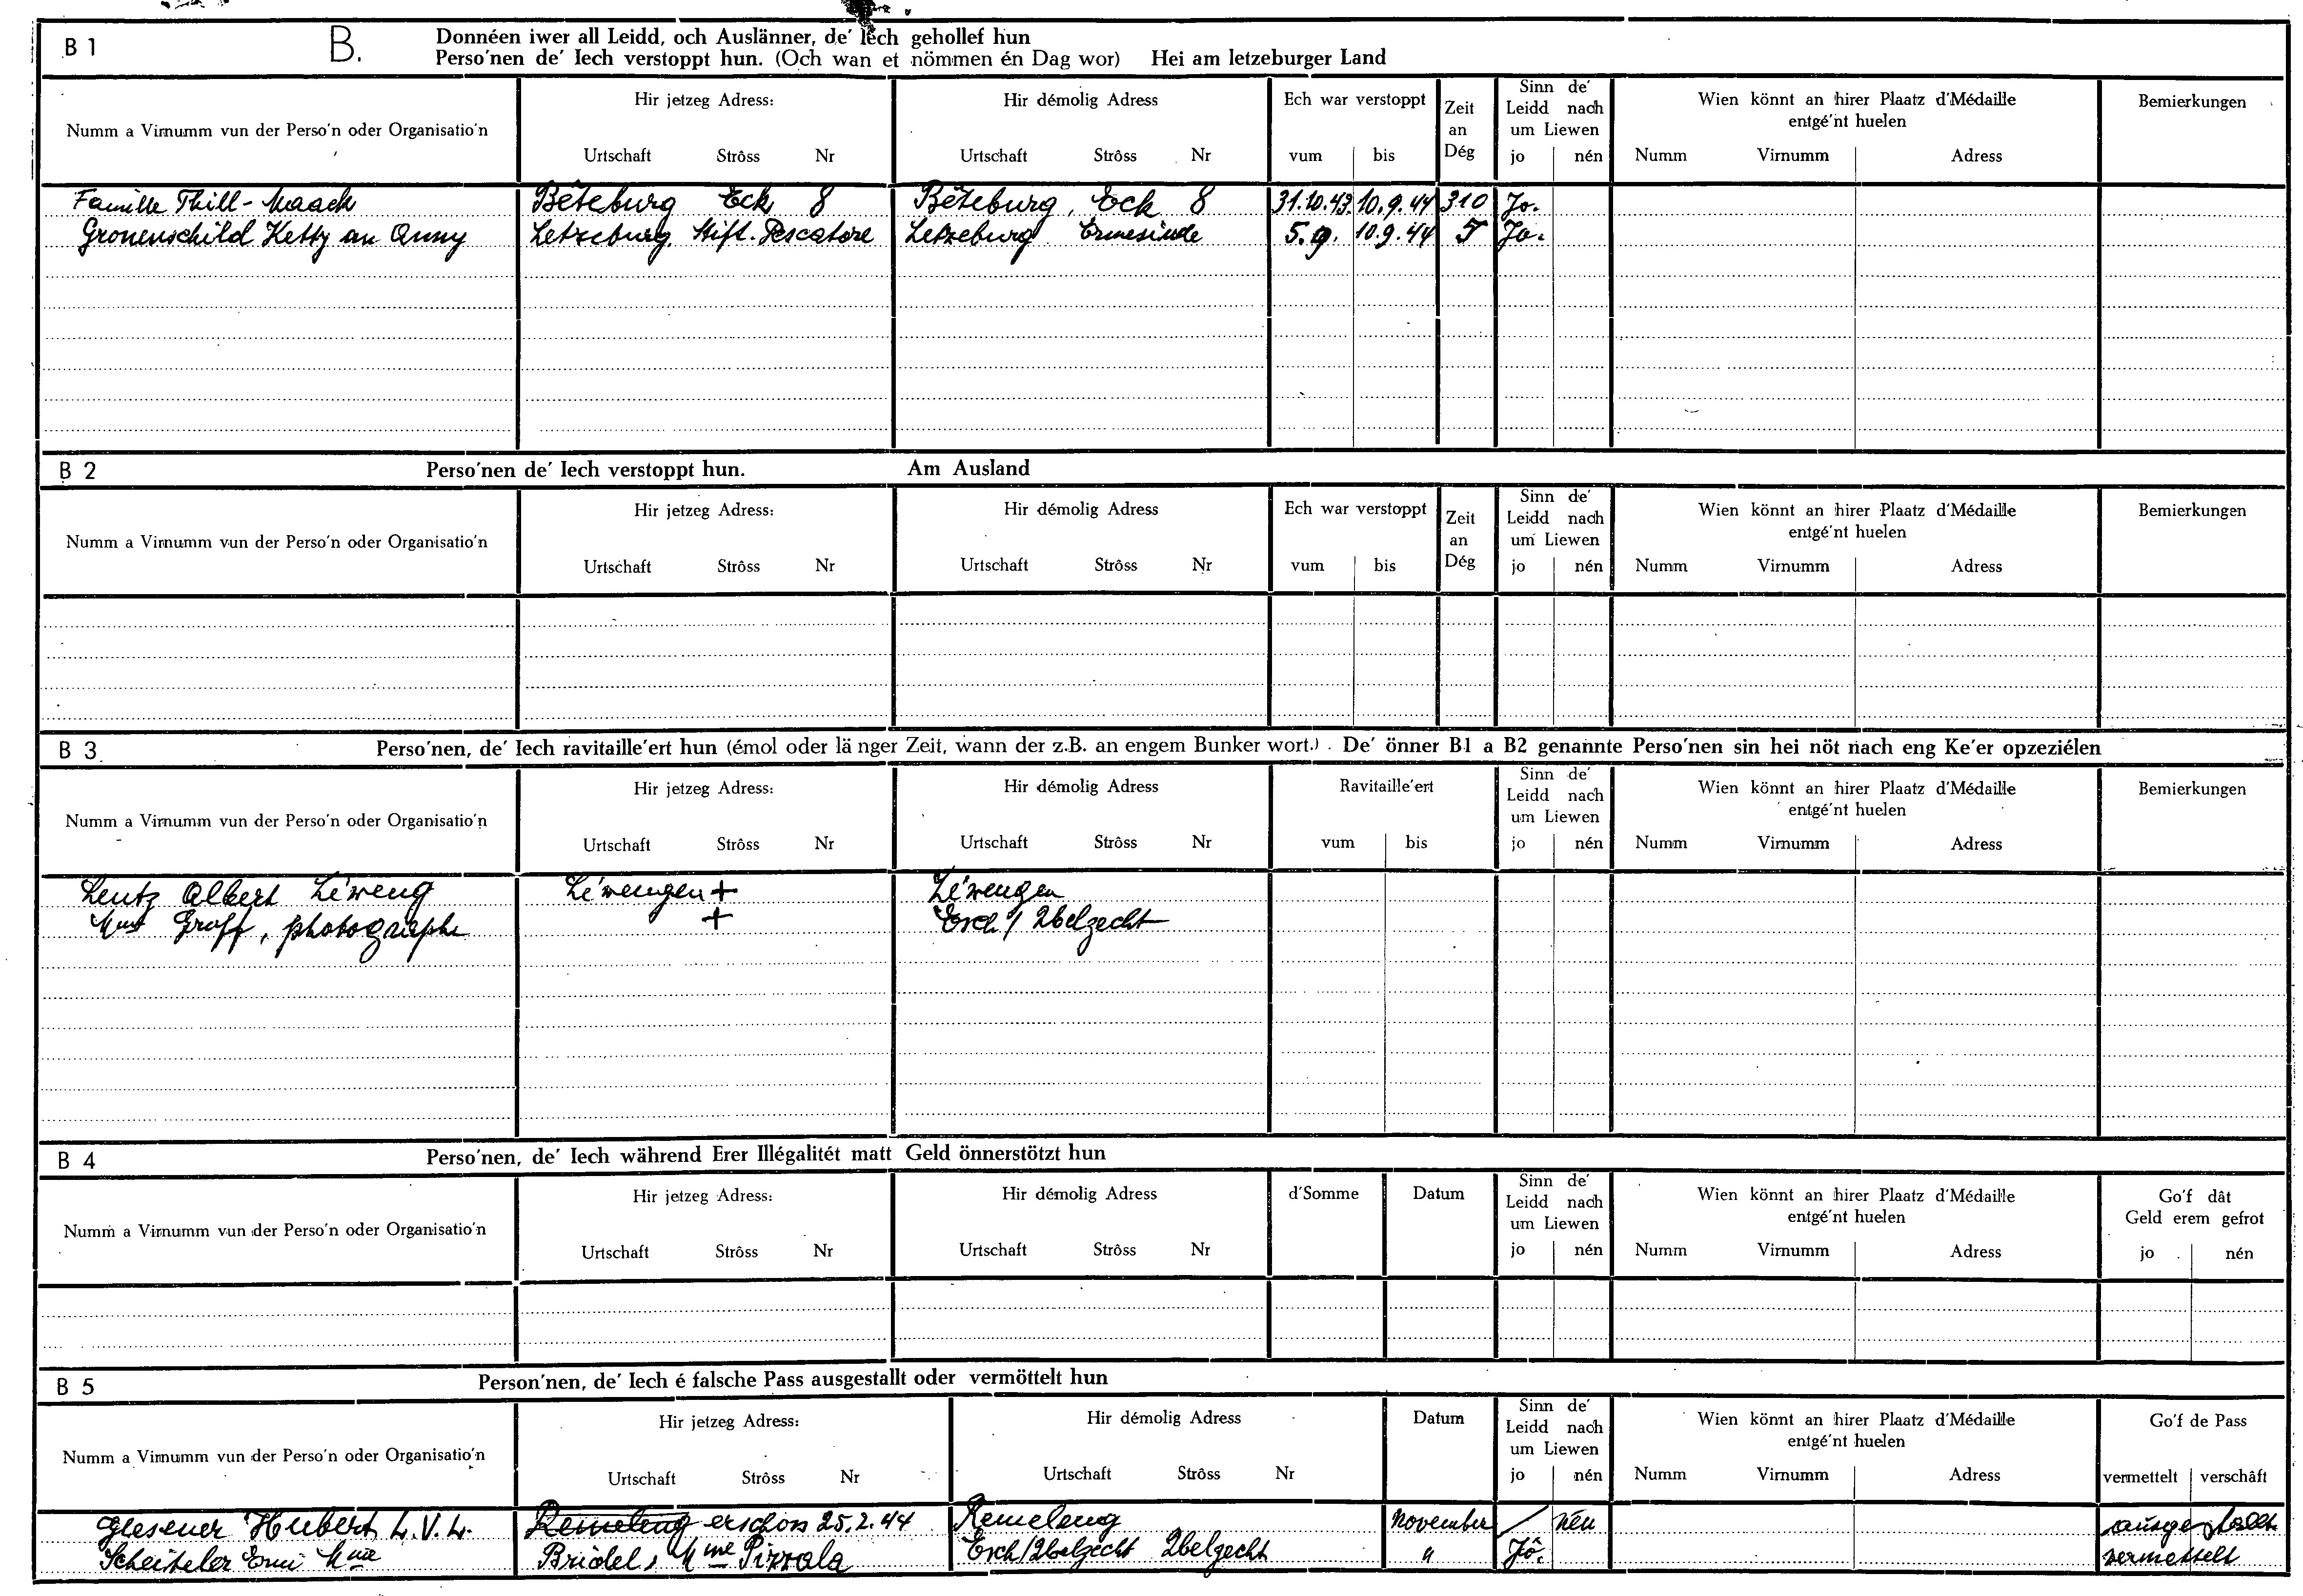 B 1 B. Donnéen iwer all Leidd, och Auslänner, de' Iech gehollef hun
Perso'nen de' Iech verstoppt hun. (Och wan et nömmen én Dag wor) Hei am letzeburger Land
Numm a Virnumm vun der Perso'n oder Organisatio'n
Hir jetzeg Adress:
Urtschaft Strôss Nr
Hir démolig Adress
Urtschaft Strôss Nr
Ech war verstoppt
vum bis
Zeit
an
Dég
Sinn de'
Leidd nach
um Liewen
jo nén
Wien könnt an hirer Plaatz d'Médaille
entgé'nt huelen
Numm Virnumm Adress
Bemierkungen
Famille Thill-Maack Béteburg Eck 8 Béteburg, Eck 8 31.10.43. 10.9.44 310 Jo.
Gronenschild Ketty an Anny Letzeburg Stift. Pescatore Letzeburg Ermesinde 5.9. 10.9.44 5 Jo.
B 2 Perso'nen de' Iech verstoppt hun. Am Ausland
Numm a Virnumm vun der Perso'n oder Organisatio'n
Hir jetzeg Adress:
Urtschaft Strôss Nr
Hir démolig Adress
Urtschaft Strôss Nr
Ech war verstoppt
vum bis
Zeit
an
Dég
Sinn de'
Leidd nach
um Liewen
jo nén
Wien könnt an hirer Plaatz d'Médaille
entgé'nt huelen
Numm Virnumm Adress
Bemierkungen
B 3 Perso'nen, de' Iech ravitaille'ert hun (émol oder länger Zeit, wann der z.B. an engem Bunker wort.) De' önner B1 a B2 genannte Perso'nen sin hei nöt nach eng Ke'er opzeziélen
Numm a Virnumm vun der Perso'n oder Organisatio'n
Hir jetzeg Adress:
Urtschaft Strôss Nr
Hir démolig Adress
Urtschaft Strôss Nr
Ravitaille'ert
vum bis
Sinn de'
Leidd nach
um Liewen
jo nén
Wien könnt an hirer Plaatz d'Médaille
entgé'nt huelen
Numm Virnumm Adress
Bemierkungen
Lentz Albert Zéweng Zéwengen + Zéwengen
Graff, photographe + Esch/Uelzecht
B 4 Perso'nen, de' Iech während Erer Illégalitét matt Geld önnerstötzt hun
Numm a Virnumm vun der Perso'n oder Organisatio'n
Hir jetzeg Adress:
Urtschaft Strôss Nr
Hir démolig Adress
Urtschaft Strôss Nr
d'Somme
Datum
Sinn de'
Leidd nach
um Liewen
jo nén
Wien könnt an hirer Plaatz d'Médaille
entgé'nt huelen
Numm Virnumm Adress
Go'f dât
Geld erem gefrot
jo nén
B 5 Person'nen, de' Iech é falsche Pass ausgestallt oder vermöttelt hun
Numm a Virnumm vun der Perso'n oder Organisatio'n
Hir jetzeg Adress:
Urtschaft Strôss Nr
Hir démolig Adress
Urtschaft Strôss Nr
Datum
Sinn de'
Leidd nach
um Liewen
jo nén
Wien könnt an hirer Plaatz d'Médaille
entgé'nt huelen
Numm Virnumm Adress
Go'f de Pass
vermettelt verschâft
Glesener Hubert L.V.L. Remeleng erschoss 25.2.44 Remeleng November / nén ausgestallt
Scheiteler Emi Mme Bridel, Mme Pizzala Esch/Uelzecht " Jô. vermettelt